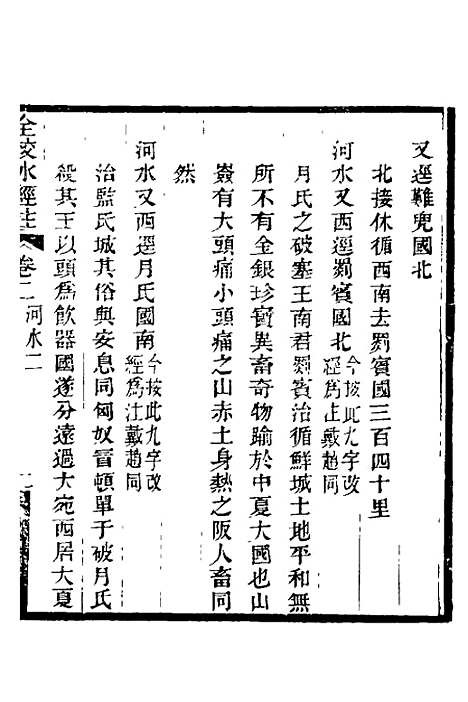 又逕難兜國北
北接休循西南去罽賓國三百四十里
河水又西逕罽賓國北今按此九字改
經爲注戴趙同
月氏之破塞王南君罽賓治循鮮城土地平和無
所不有金銀珍寶異畜奇物踰於中夏大國也山
嶮有大頭痛小頭痛之山赤土身熱之阪人畜同
然
河水又西逕月氏國南今按此九字改
經爲注戴趙同
治監氏城其俗與安息同匈奴冒頓單于破月氏
殺其王以頭爲飲器國遂分遠過大宛西居大夏
全校水經注 卷二 河水二